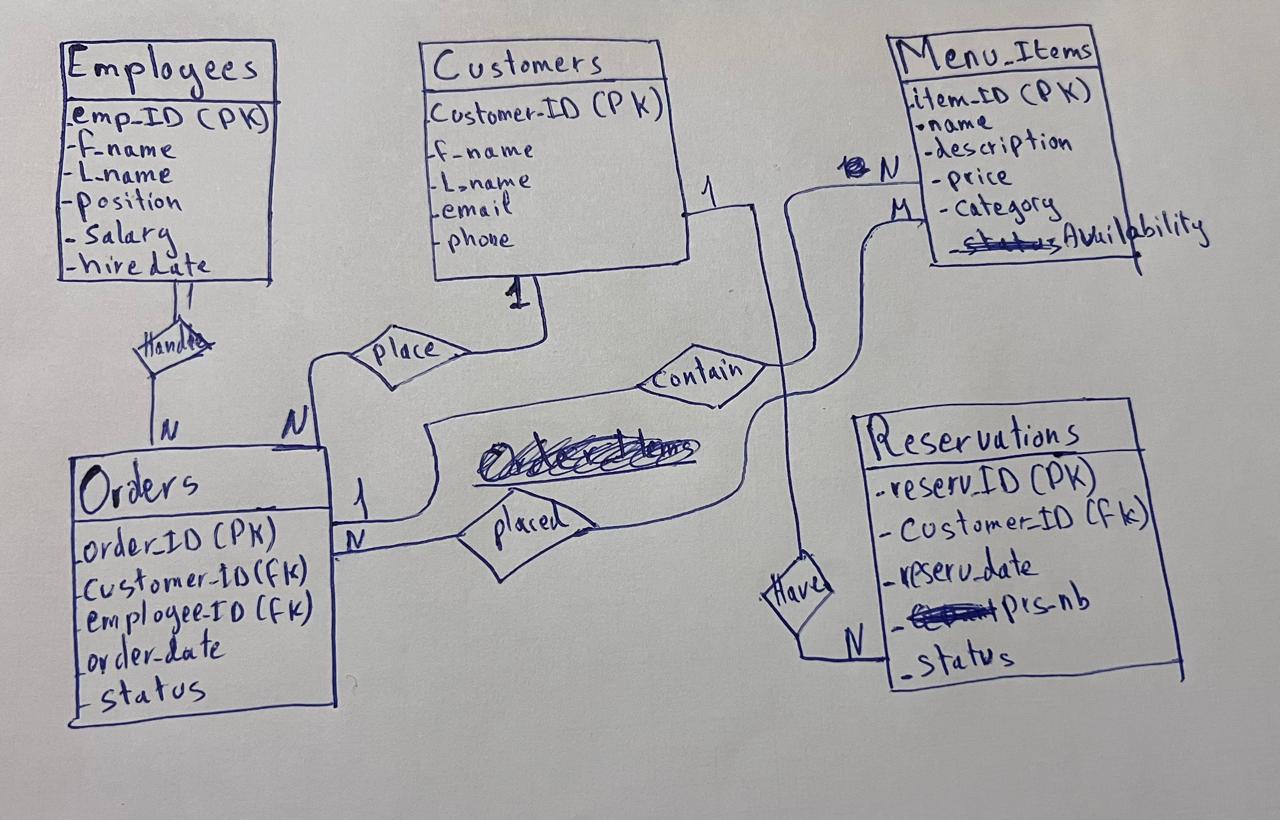 Employees
emp_ID (PK)
-f_name
-L_name
-position
- Salary
-hire date
Customers
Customer_ID (PK)
-f_name
-L_name
-email
-phone
Menu_Items
.item_ID (PK)
-name
-description
-price
-Category
- Availability
1
Handle
N
1
place
N
1
N
M
contain
1
N
placed
Have
N
Orders
order_ID (PK)
customer_ID (fK)
employee_ID (fK)
order_date
- status
Reservations
-reserv_ID (PK)
- Customer_ID (fK)
-reserv_date
- prs_nb
- status